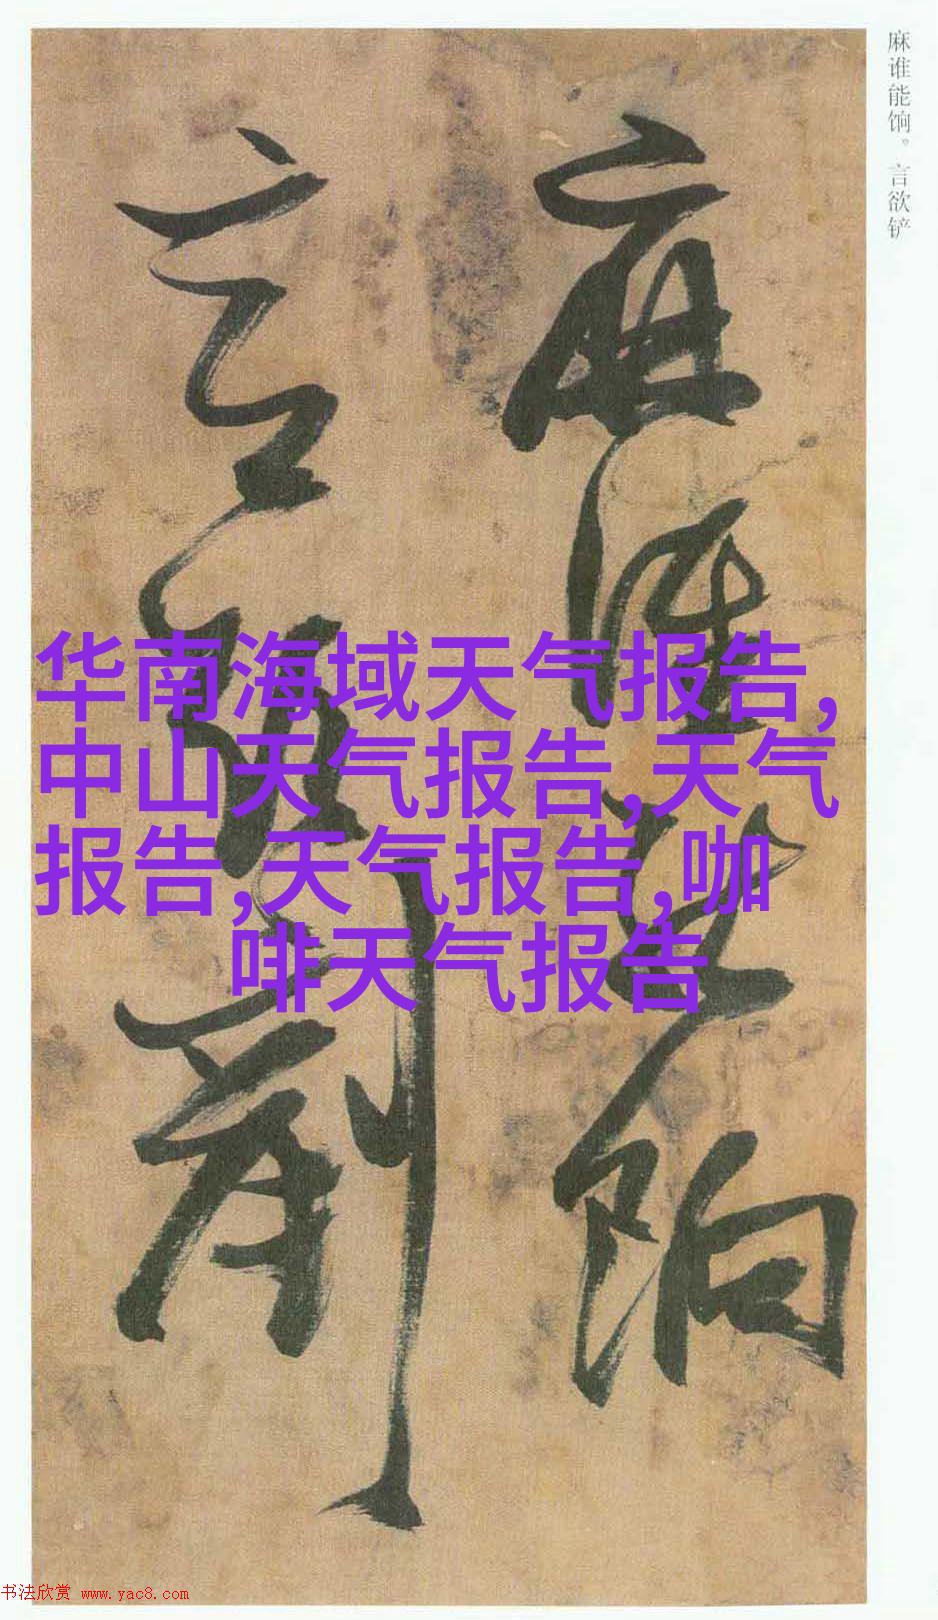 麻谁能饷。言欲铲
麻谁能饷
言欲剷
华南海域天气报告,
中山天气报告,天气
报告,天气报告,咖
啡天气报告
书法欣赏 www.yac8.com